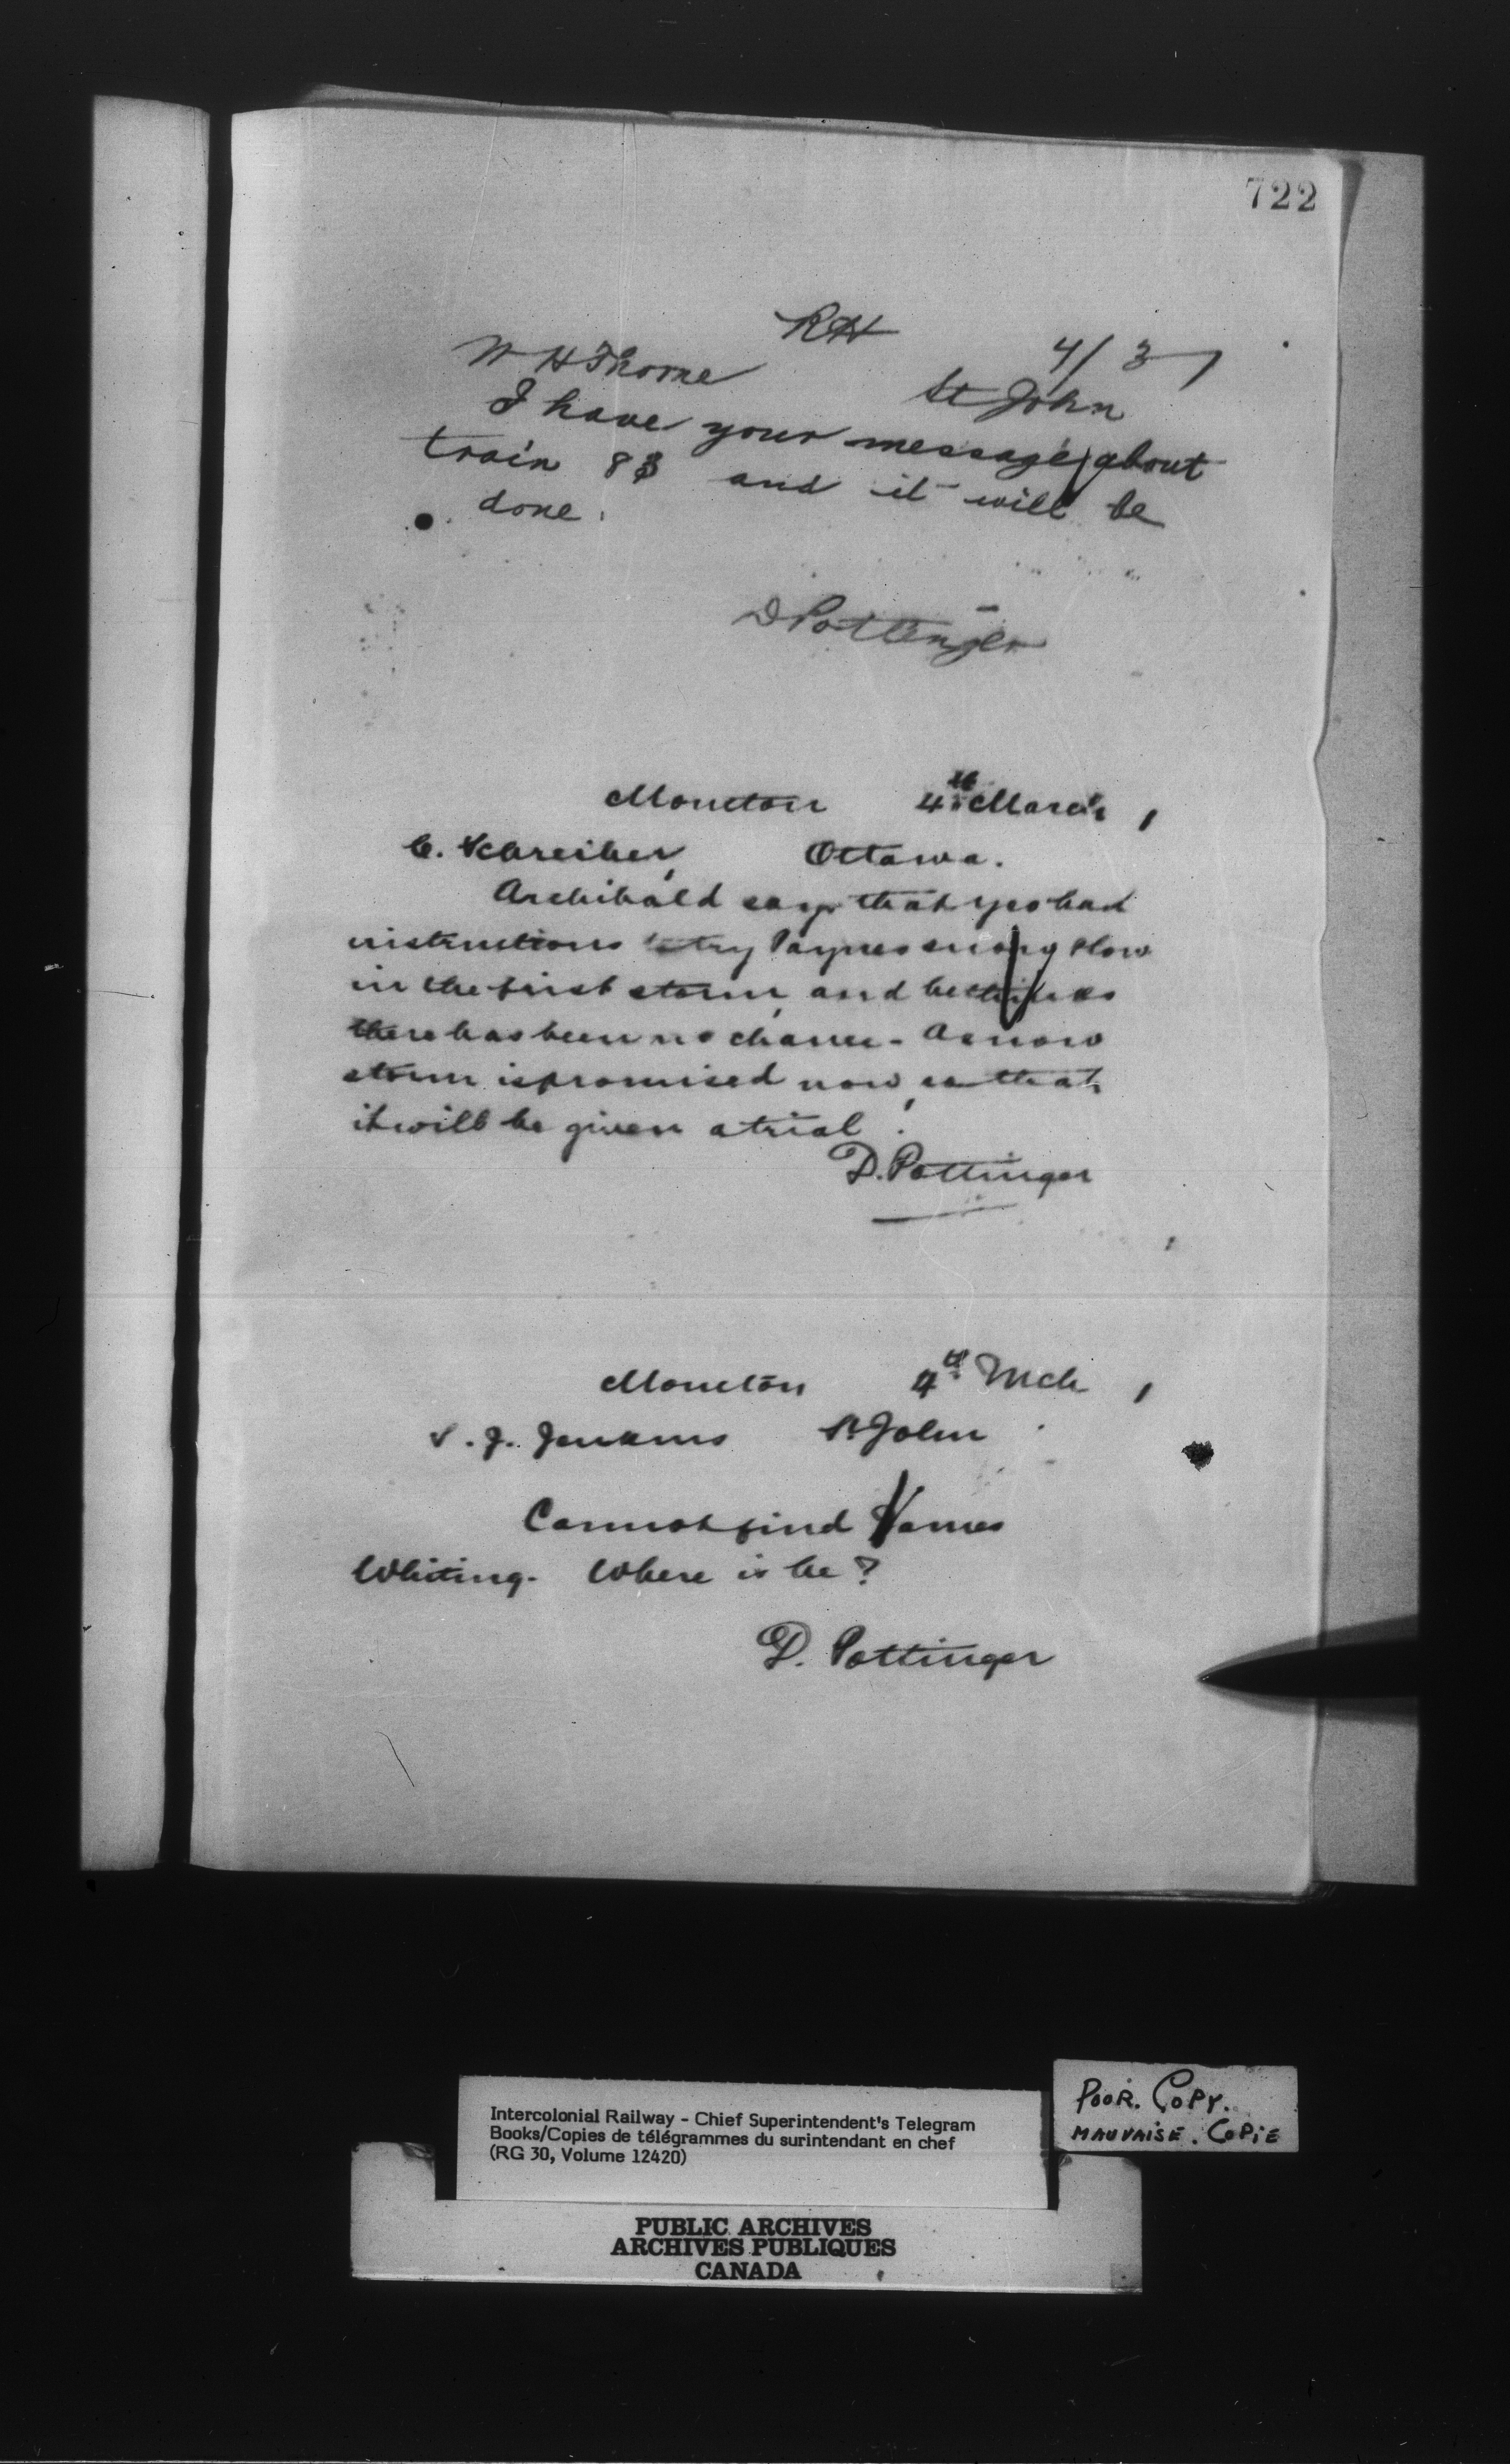 722
RH
4/3
W H Thorne
St John
I have your message about
train 83 and it will be
done.
D Pottinger
Moncton 4th March
C. Schreiber, Ottawa.
Archibald says that Yeo had
instructions to try Paynes snow plow
in the first storm, and he thinks
there has been no chance - A snow
storm is promised now, so that
it will be given a trial.
D. Pottinger
Moncton 4th Mch
S. J. Jenkins St John
Cannot find James
Whiting. Where is he?
D. Pottinger
POOR. COPY.
MAUVAISE. COPiE
Intercolonial Railway - Chief Superintendent's Telegram
Books/Copies de télégrammes du surintendant en chef
(RG 30, Volume 12420)
PUBLIC ARCHIVES
ARCHIVES PUBLIQUES
CANADA